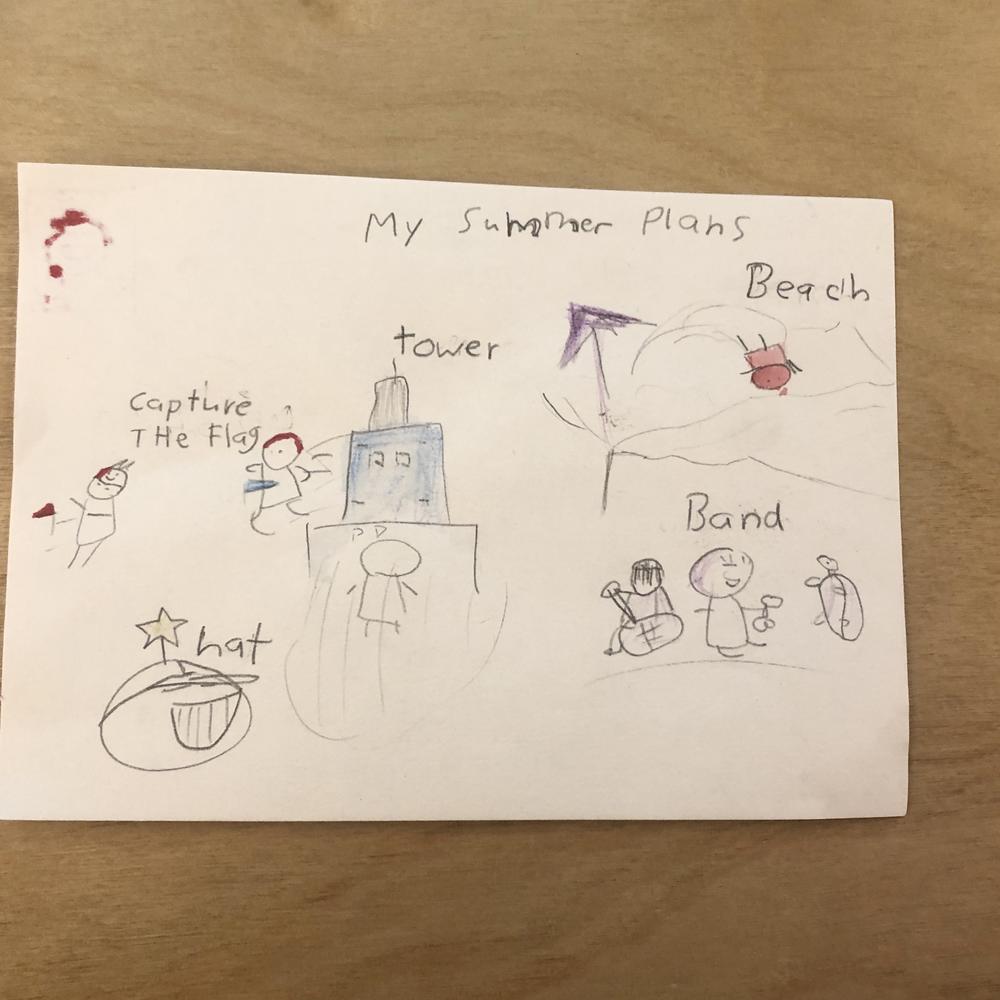 My Summer Plans
Beach
tower
Capture
THe Flag
Band
hat